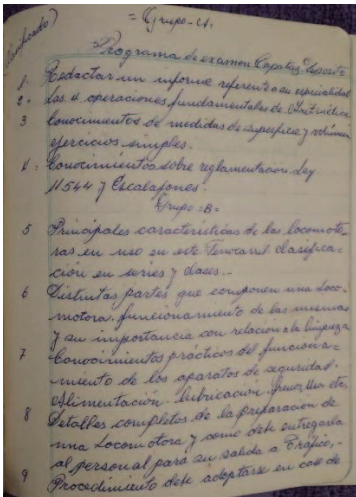 (Planificado)
= Grupo - A =
Programa de examen Capataz Deposito
1. Redactar un informe referente a su especialidad
2. Las 4 operaciones fundamentales de Aritmética
3 Conocimientos de medidas de superficie y volúmen
ejercicios simples.
4 = Conocimientos sobre reglamentacion Ley
11544 y Escalafones.
Grupo = B =
5 Principales caracteristicas de las locomoto=
ras en uso en este Ferrocarril clasifica=
ción en series y clases..
6 Distintas partes que componen una Loco=
motora, funcionamiento de las mismas
y su importancia con relacion a la limpieza
7 Conocimientos prácticos del funciona=
miento de los aparatos de seguridad.
Alimentación lubricación, freno, etc.
8 Detalles completos de la preparación de
una Locomotora y como debe entregarla
al personal para su salida a Tráfico, -
9 Procedimiento debe adoptarse en caso de